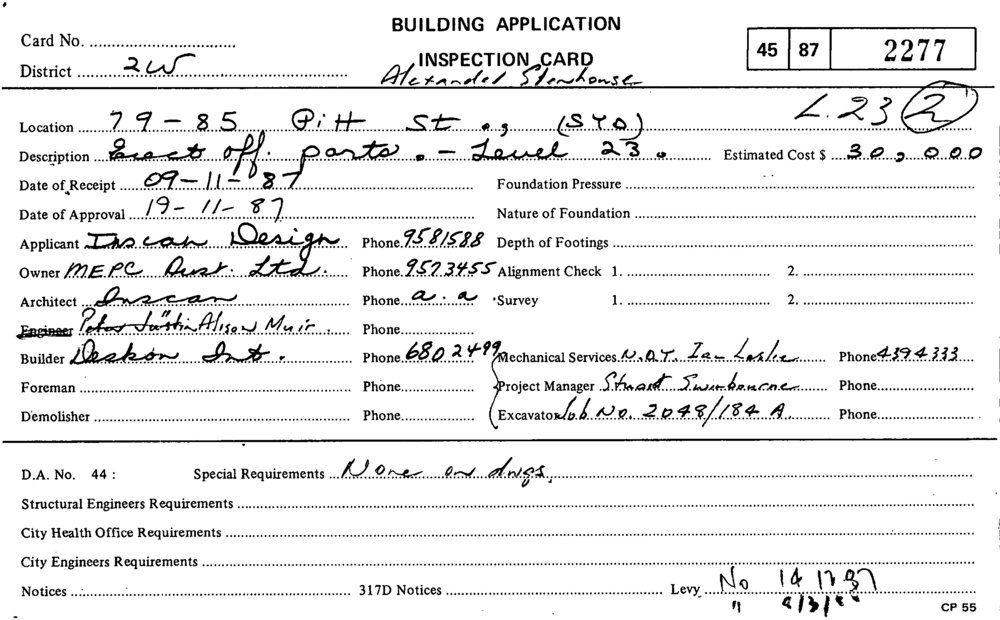 BUILDING APPLICATION
Card No. ....................................
INSPECTION CARD
45 87 2277
District ........2W........
Alexander Stenhouse
L.23 (2)
Location ....79-85 Pitt St., (SYD)....
Description ....Erect off. parts. - Level 23.... Estimated Cost $ ...30,000
Date of Receipt ....09-11-87.... Foundation Pressure ....................................
Date of Approval ....19-11-87.... Nature of Foundation ....................................
Applicant Inscan Design Phone. 9581588 Depth of Footings ....................................
Owner MEPC Aust. Ltd. Phone. 9573455 Alignment Check 1. .................................... 2. ....................................
Architect ...Inscan... Phone. a.a Survey 1. .................................... 2. ....................................
Engineer Peter Justin Alison Muir. Phone....................
Builder Deskon Int. Phone. 6802499 Mechanical Services N.D.Y. Ian Leslie Phone 4394333
Foreman .................................... Phone.................... Project Manager Stuart Swinbourne Phone....................
Demolisher .................................... Phone.................... Excavator Job No. 2048/184 A. Phone....................
D.A. No. 44 : Special Requirements ...None on dwgs.
Structural Engineers Requirements ....................................
City Health Office Requirements ....................................
City Engineers Requirements ....................................
Notices .................................... 317D Notices .................................... Levy No 14 12 87
" 
CP 55